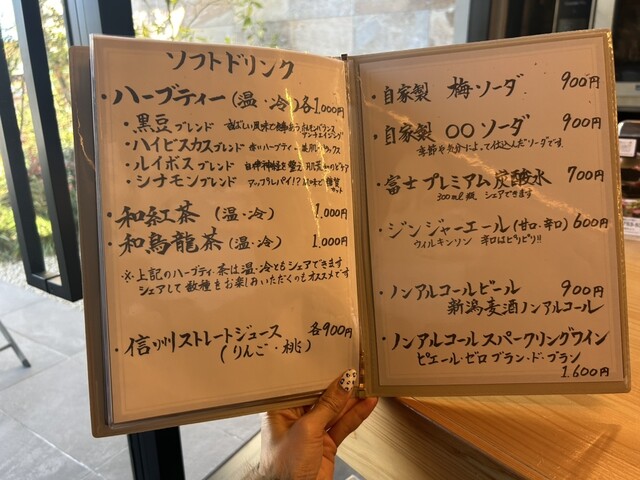 ソフトドリンク
・ハーブティー(温・冷)各1,000円
・黒豆ブレンド
・ハイビスカスブレンド
・ルイボスブレンド
・シナモンブレンド
・和紅茶(温・冷) 1,000円
・和烏龍茶(温・冷) 1,000円
※上記のハーブティ・茶は温・冷ともシェアできます
シェアして数種をお楽しみいただくのもオススメです
・信州ストレートジュース 各900円
(りんご・桃)
・自家製 梅ソーダ 900円
・自家製 〇〇ソーダ 900円
季節や気分によって仕込んだソーダです。
・富士プレミアム炭酸水 700円
300ml瓶 シェアできます
・ジンジャーエール(甘口・辛口) 600円
ウィルキンソン 辛口はピリピリ!!
・ノンアルコールビール 900円
新潟麦酒ノンアルコール
・ノンアルコールスパークリングワイン
ピエール・ゼロ ブラン・ド・ブラン
1,600円